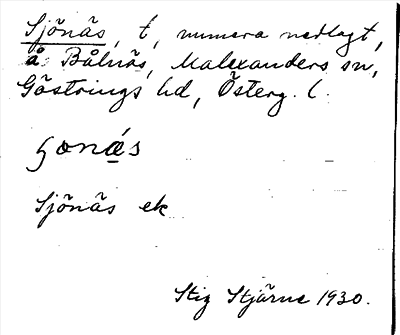 Sjönäs, t, numera nedlagt,
å Bålnäs, Malexanders sn,
Göstrings hd, Österg. l.
Sjönäs ek
Stig Stjärne 1930.